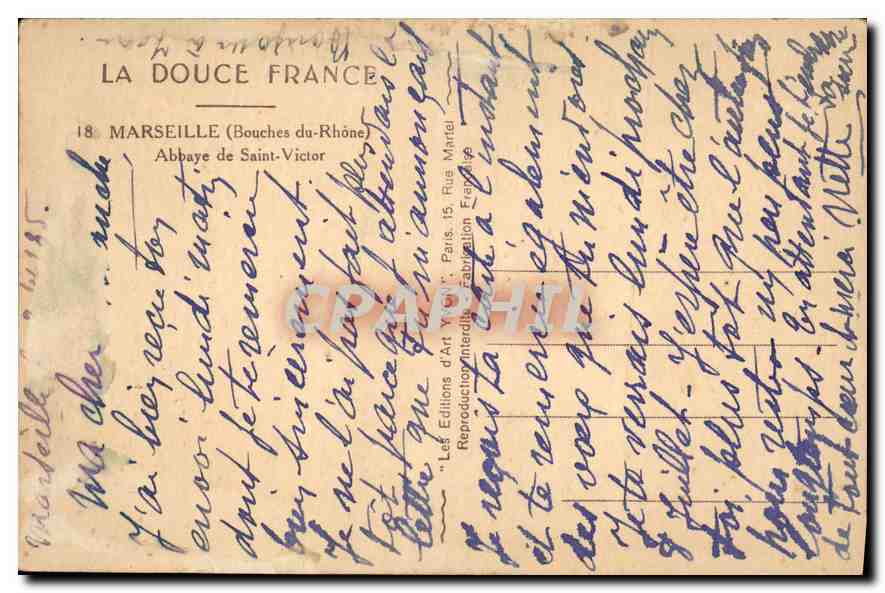 LA DOUCE FRANCE
18 MARSEILLE (Bouches du-Rhône)
Abbaye de Saint-Victor
"Les Editions d'Art Paris. 15, Rue Martel
Reproduction Interdite Fabrication Française
CPAPHIL
Marseille
Ma cher
J'ai bien reçu ton
envoi lundi matin
dont je te remercie
bien sincèrement.
Je ne t'ai pas écrit plus
tôt parce que dans la
lettre que tu m'annonçais
Je reçois ta carte à l'instant
et te remercie également
des vœux que tu m'envoies
Je te verrais lundi prochain
8 Juillet - J'espère être chez
toi plus tôt que l'autre fois
nous rester un peu plus
longtemps - En attendant
de tout cœur Nette